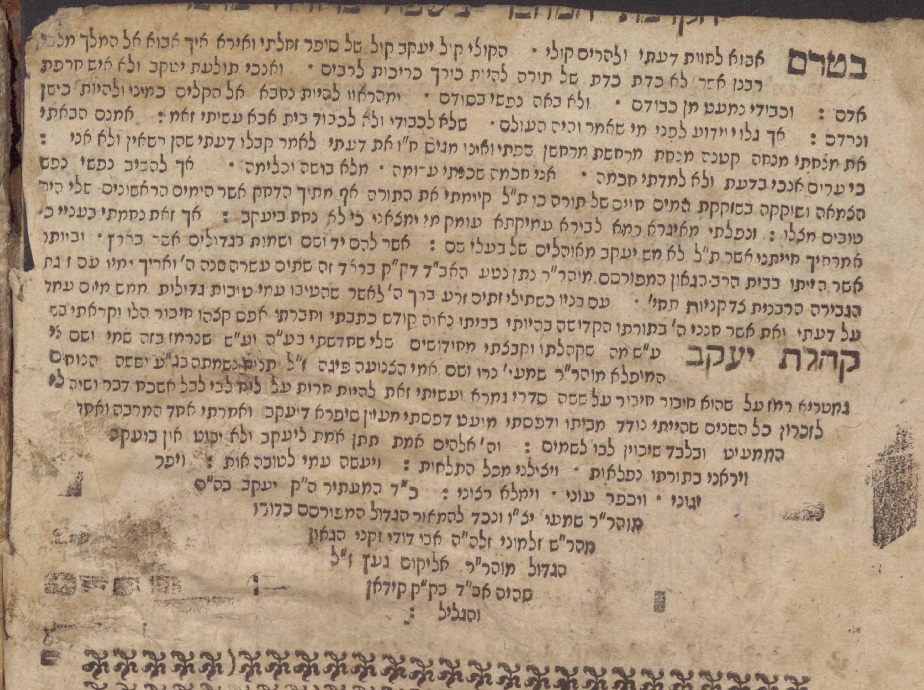 בטרם אבוא לחוות דעתי ולהרים קולי ׃ הקולי קול יעקב קול של סופר זחלתי ואירא איך אבוא אל המלך
רבנן אשר לא כדת כדת של תורה להיות כורך כריכות לרבים ׃ ואנכי תולעת יעקב ולא איש חרפת
אדם : וכבודי נמעט מן כבודם ׃ ולא באה נפשי בסודם ׃ ומהראוי להיות נחבא אל הכלים כמוני ולהיות כישן
ונרדם : אך גלוי וידוע לפני מי שאמר והיה העולם ׃ שלא לכבודי ולא לכבוד בית אבא עשיתי זאת : אמנם הבאתי
את מנחתי מנחה קטנה מנחת מרחשת מרחשן בפתי ואינו מגיס ח"ו את דעתי לאמר קבלו דעתי שהן רשאין ולא אני :
כי ערום אנכי בדעת ולא למדתי חכמה ׃ אני חכמה שכנתי ערומה ׃ מלא בושה וכלימה ׃ אך להשיב נפשי נפש
הצמאה ושוקקה בשוקקת המים חיים של תורה כי ת"ל קיימתי את התורה אף מתוך הדחק אשר הימים הראשונים שלי היו
טובים מאלו : ונפלתי מאיגרא רמא לבירא עמיקתא עומק מי ימצאני כי לא נחת ביעקב : אך זאת נחמתי בעניי כי
אמרתיך חייתני אשר ת"ל לא מש יעקב מאוהלים של בעלי שם : אשר להם יד ושם ושמות בגדולים אשר בארץ ׃ וביותר
אשר הייתי בבית הרב הגאון המפורסם מוהר"ר נתן נטע האב"ד דק"ק בראד זה שתים עשרה שנה ה' יאריך ימיו עם זוגתו
הגבירה הרבנית צדקניות תחי' ׃ עם בניו כשתילי זתים זרע ברך ה' לאשר שהטיבו עמי טובות גדולות ממש מיום עמדי
על דעתי ואת אשר חנני ה' בתורתו הקדושה בהיותי בביתו נאוה קודש כתבתי וחברתי אפס קצהו חיבור הלז וקראתי בשם
קהלת יעקב ע"ש מה שקהלתי וקבצתי מחידושים שלי שחדשתי בע"ה וע"ש שנרמז בזה שמי ושם
המופלא מוהר"ר שמעי' נרו ושם אמי הצנועה פיגה ז"ל תהא נשמתה בג"ע יפשה הנוחים
גמטריא רמז על שהוא חיבור חיבור על ששה סדרי גמרא ועשיתי זאת להיות חרות על לוח לבי לבל אשכח דבר ושיה לי
לזכרון כל השנים שהייתי נודד מביתו ודפסתי מועט דפסתי מעין שיפרא דיעקב ואמרתי אחד המרבה ואחד
הממעיט ובלבד שיכוין לבו לשמים : וה' אלהים אמת תתן אמת ליעקב ולא יביט און ביעקב
ויראני בתורתו נפלאות ׃ ויצילני מכל התלאות : ויעשה עמי לטובה אות : ויפר
יגוני ׃ ויכפר עוני ׃ וימלא רצוני : כ"ד המעתיר ה"ק יעקב בה"ה
מוהר"ר שמעי' יצ"ו ונכד להמאור הגדול המפורסם בדורו
מהר"ש זלמוני זלה"ה אבי דודי זקני הגאון
הגדול מוהר"ר אליקום געץ ז"ל
שהיה אב"ד בק"ק קידאן
והגליל :